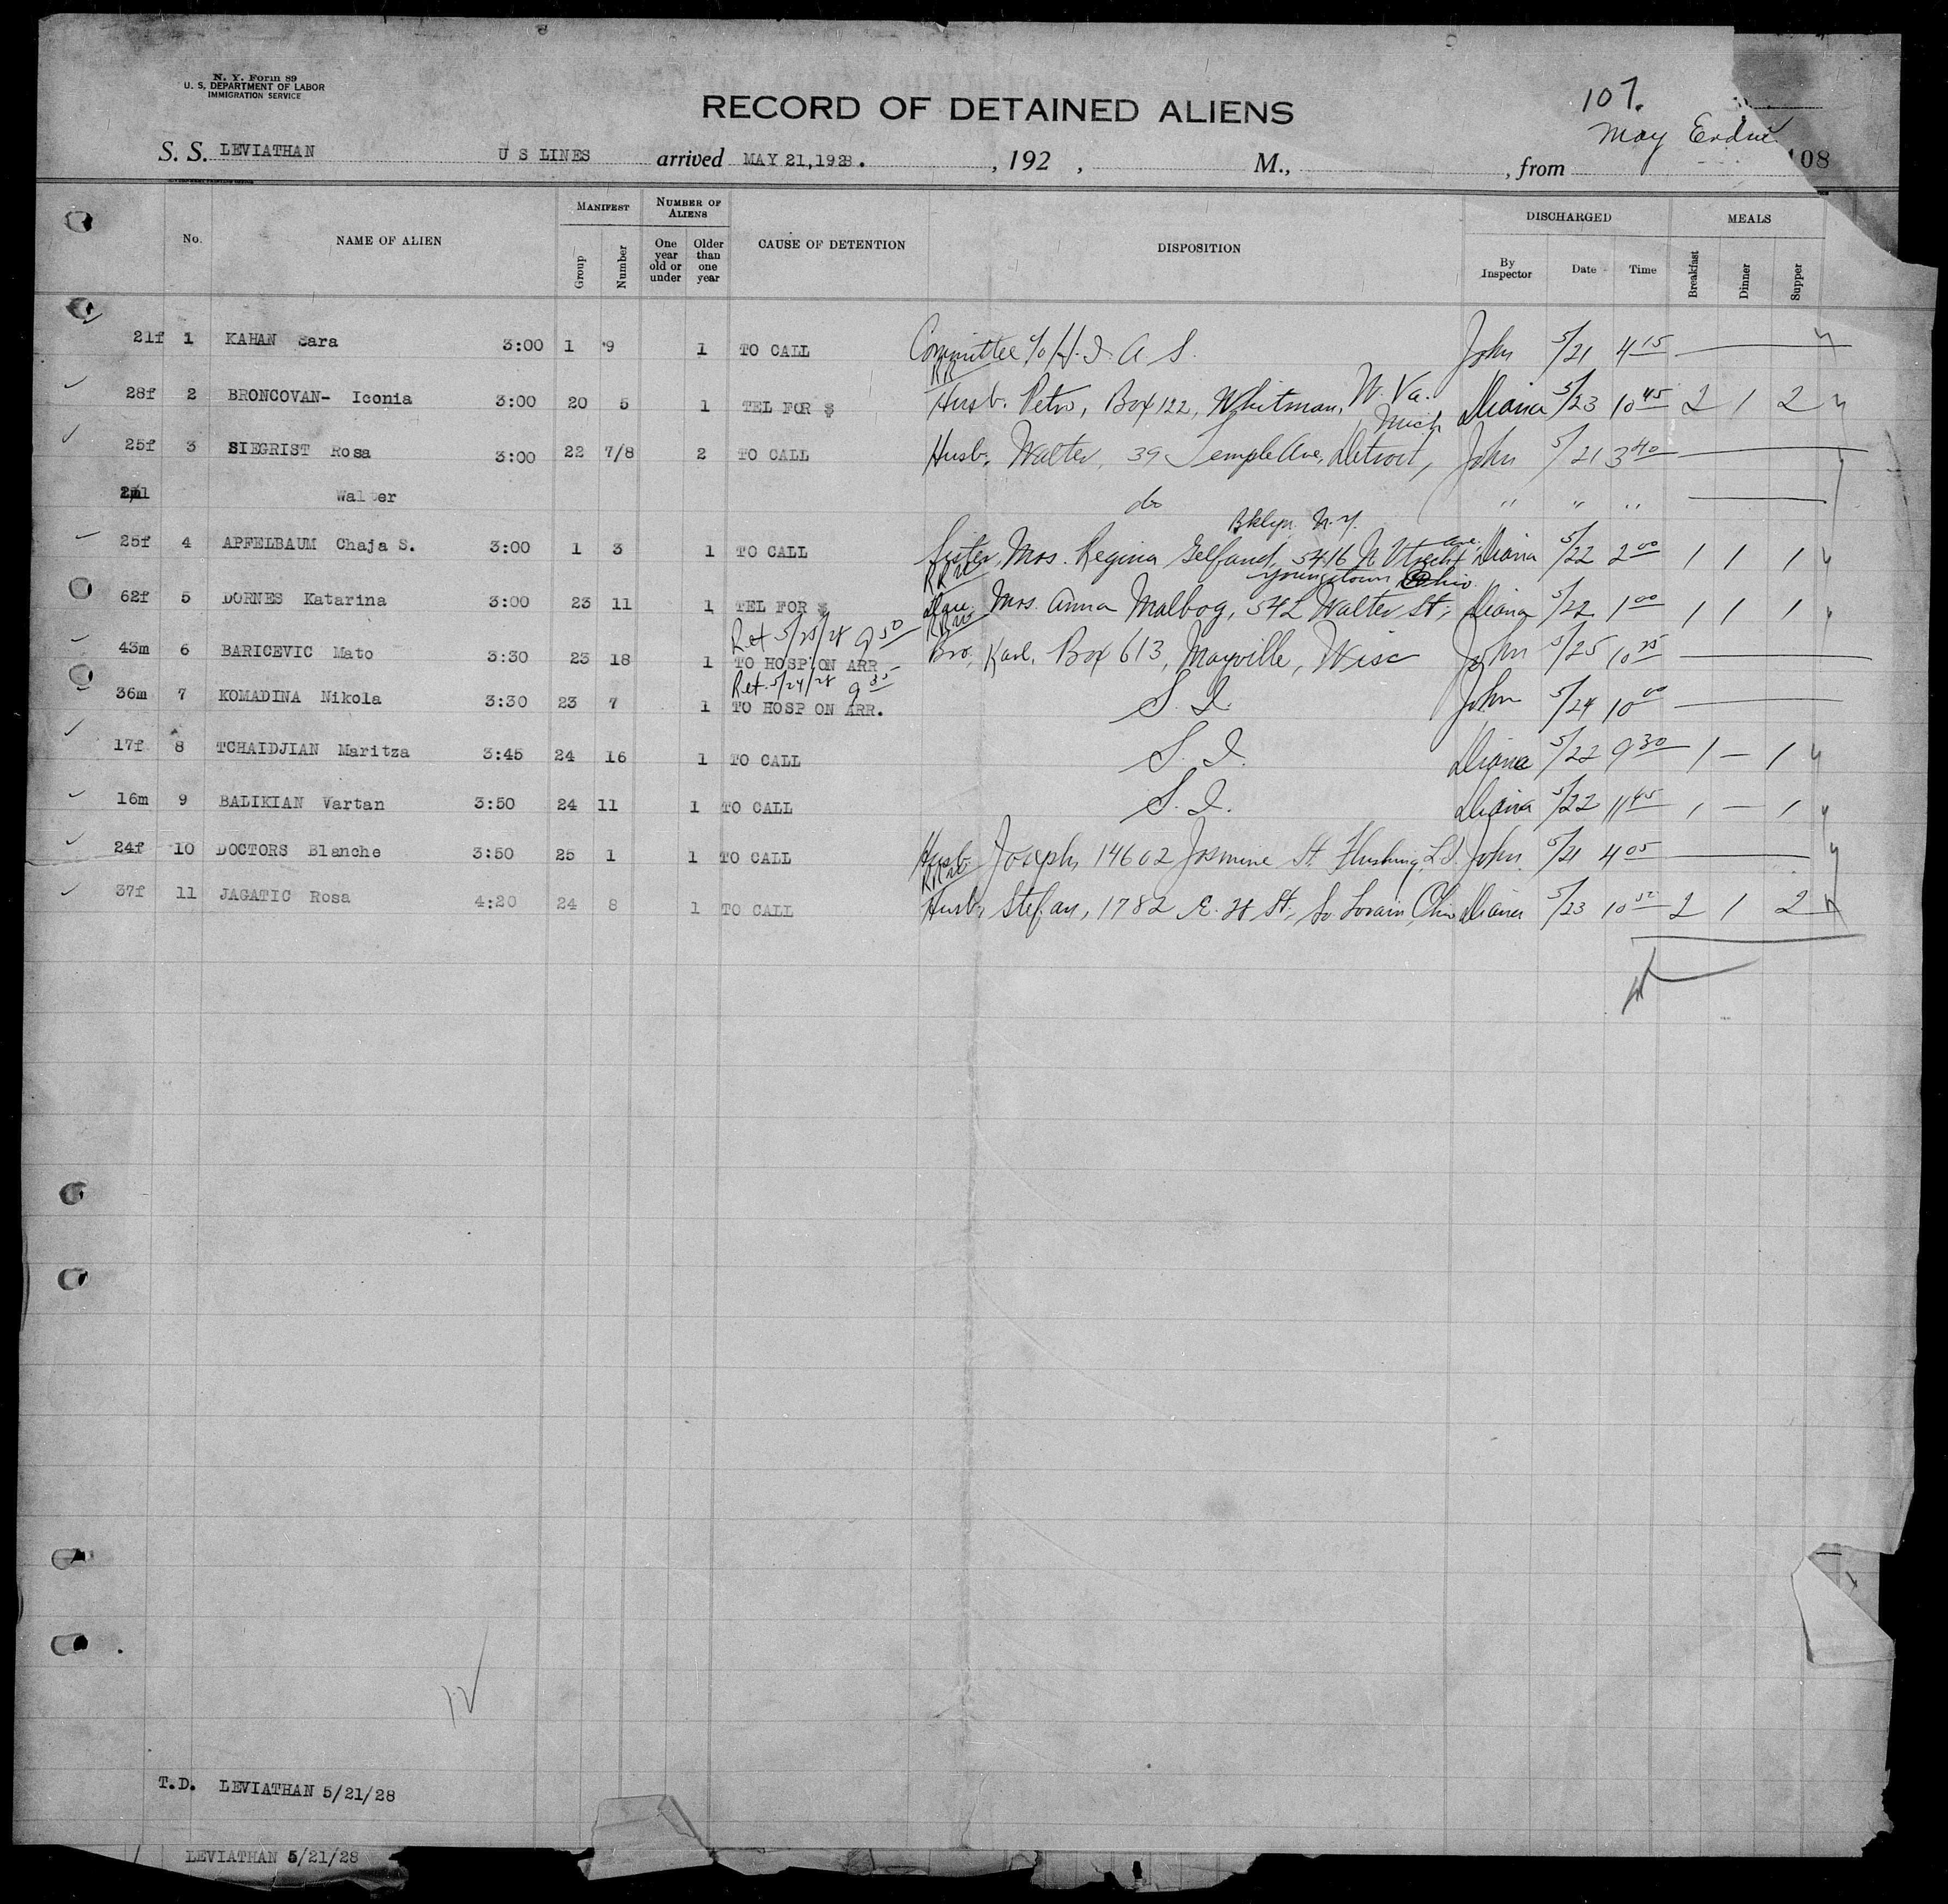 N. Y. Form 89
U. S. DEPARTMENT OF LABOR
IMMIGRATION SERVICE
107.
RECORD OF DETAINED ALIENS
May
S. S. LEVIATHAN U S LINES arrived MAY 21,1928. , 192 , M., , from 108
No. NAME OF ALIEN MANIFEST Group Number NUMBER OF ALIENS One year old or under Older than one year CAUSE OF DETENTION DISPOSITION DISCHARGED By Inspector Date Time MEALS Breakfast Dinner Supper
21f 1 KAHAN Sara 3:00 1 9 1 TO CALL Committee c/o H. I. A S. John 5/21 4 15
RR
28f 2 BRONCOVAN- Iconia 3:00 20 5 1 TEL FOR $ Husb. Petro, Box 122, Whitman, W. Va. Diana 5/23 10 45 2 1 2
25f 3 SIEGRIST Rosa 3:00 22 7/8 2 TO CALL Husb. Walter, 39 Temple Ave, Detroit, Mich John 5/21 3 40
Walter do " " "
Bklyn. N.Y.
25f 4 APFELBAUM Chaja S. 3:00 1 3 1 TO CALL Sister, Mrs. Regina Gelfand, 5416 N Utrecht Ave. Diana 5/22 2 00 1 1 1
Youngstown Ohio
62f 5 DORNES Katarina 3:00 23 11 1 TEL FOR $ Mrs. Anna Malbog, 542 Walter St, Diana 5/22 1 00 1 1 1
Ret 5/25/28 9 50
43m 6 BARICEVIC Mato 3:30 23 18 1 TO HOSP ON ARR Bro, Karl, Box 613, Mayville, Wisc John 5/25 10 25
Ret. 5/24/28 9 35
36m 7 KOMADINA Nikola 3:30 23 7 1 TO HOSP ON ARR. S. I. John 5/24 10 00
17f 8 TCHAIDJIAN Maritza 3:45 24 16 1 TO CALL S. I. Diana 5/22 9 30 1 — 1
16m 9 BALIKIAN Vartan 3:50 24 11 1 TO CALL S. I. Diana 5/22 11 45 1 — 1
24f 10 DOCTORS Blanche 3:50 25 1 1 TO CALL Husb Joseph, 14602 Jasmine St. Flushing, L.I. John 5/21 4 05
37f 11 JAGATIC Rosa 4:20 24 8 1 TO CALL Husb, Stefan, 1782 E. St, So. Lorain, Ohio Diana 5/23 10 2 1 2
12
T.D. LEVIATHAN 5/21/28
LEVIATHAN 5/21/28